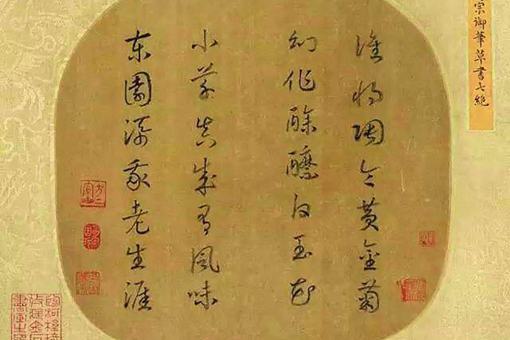 宗御筆草書七絕
誰將陶令黃金菊
幻作酴醿白玉花
小草真成有風味
東園添我老生涯